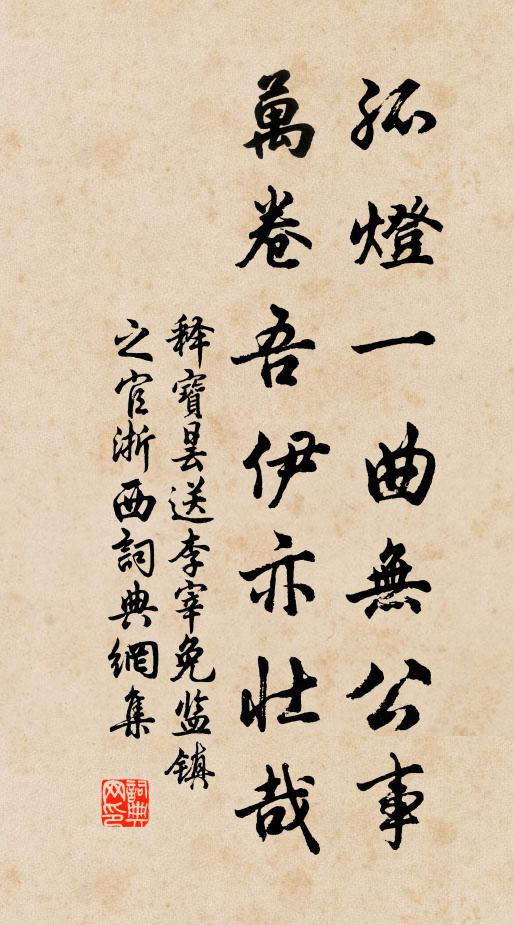 孤燈一曲無公事
萬卷吾伊亦壯哉
释寶曇送李宰免监鎮
之官浙西詞典網集
詞典网印